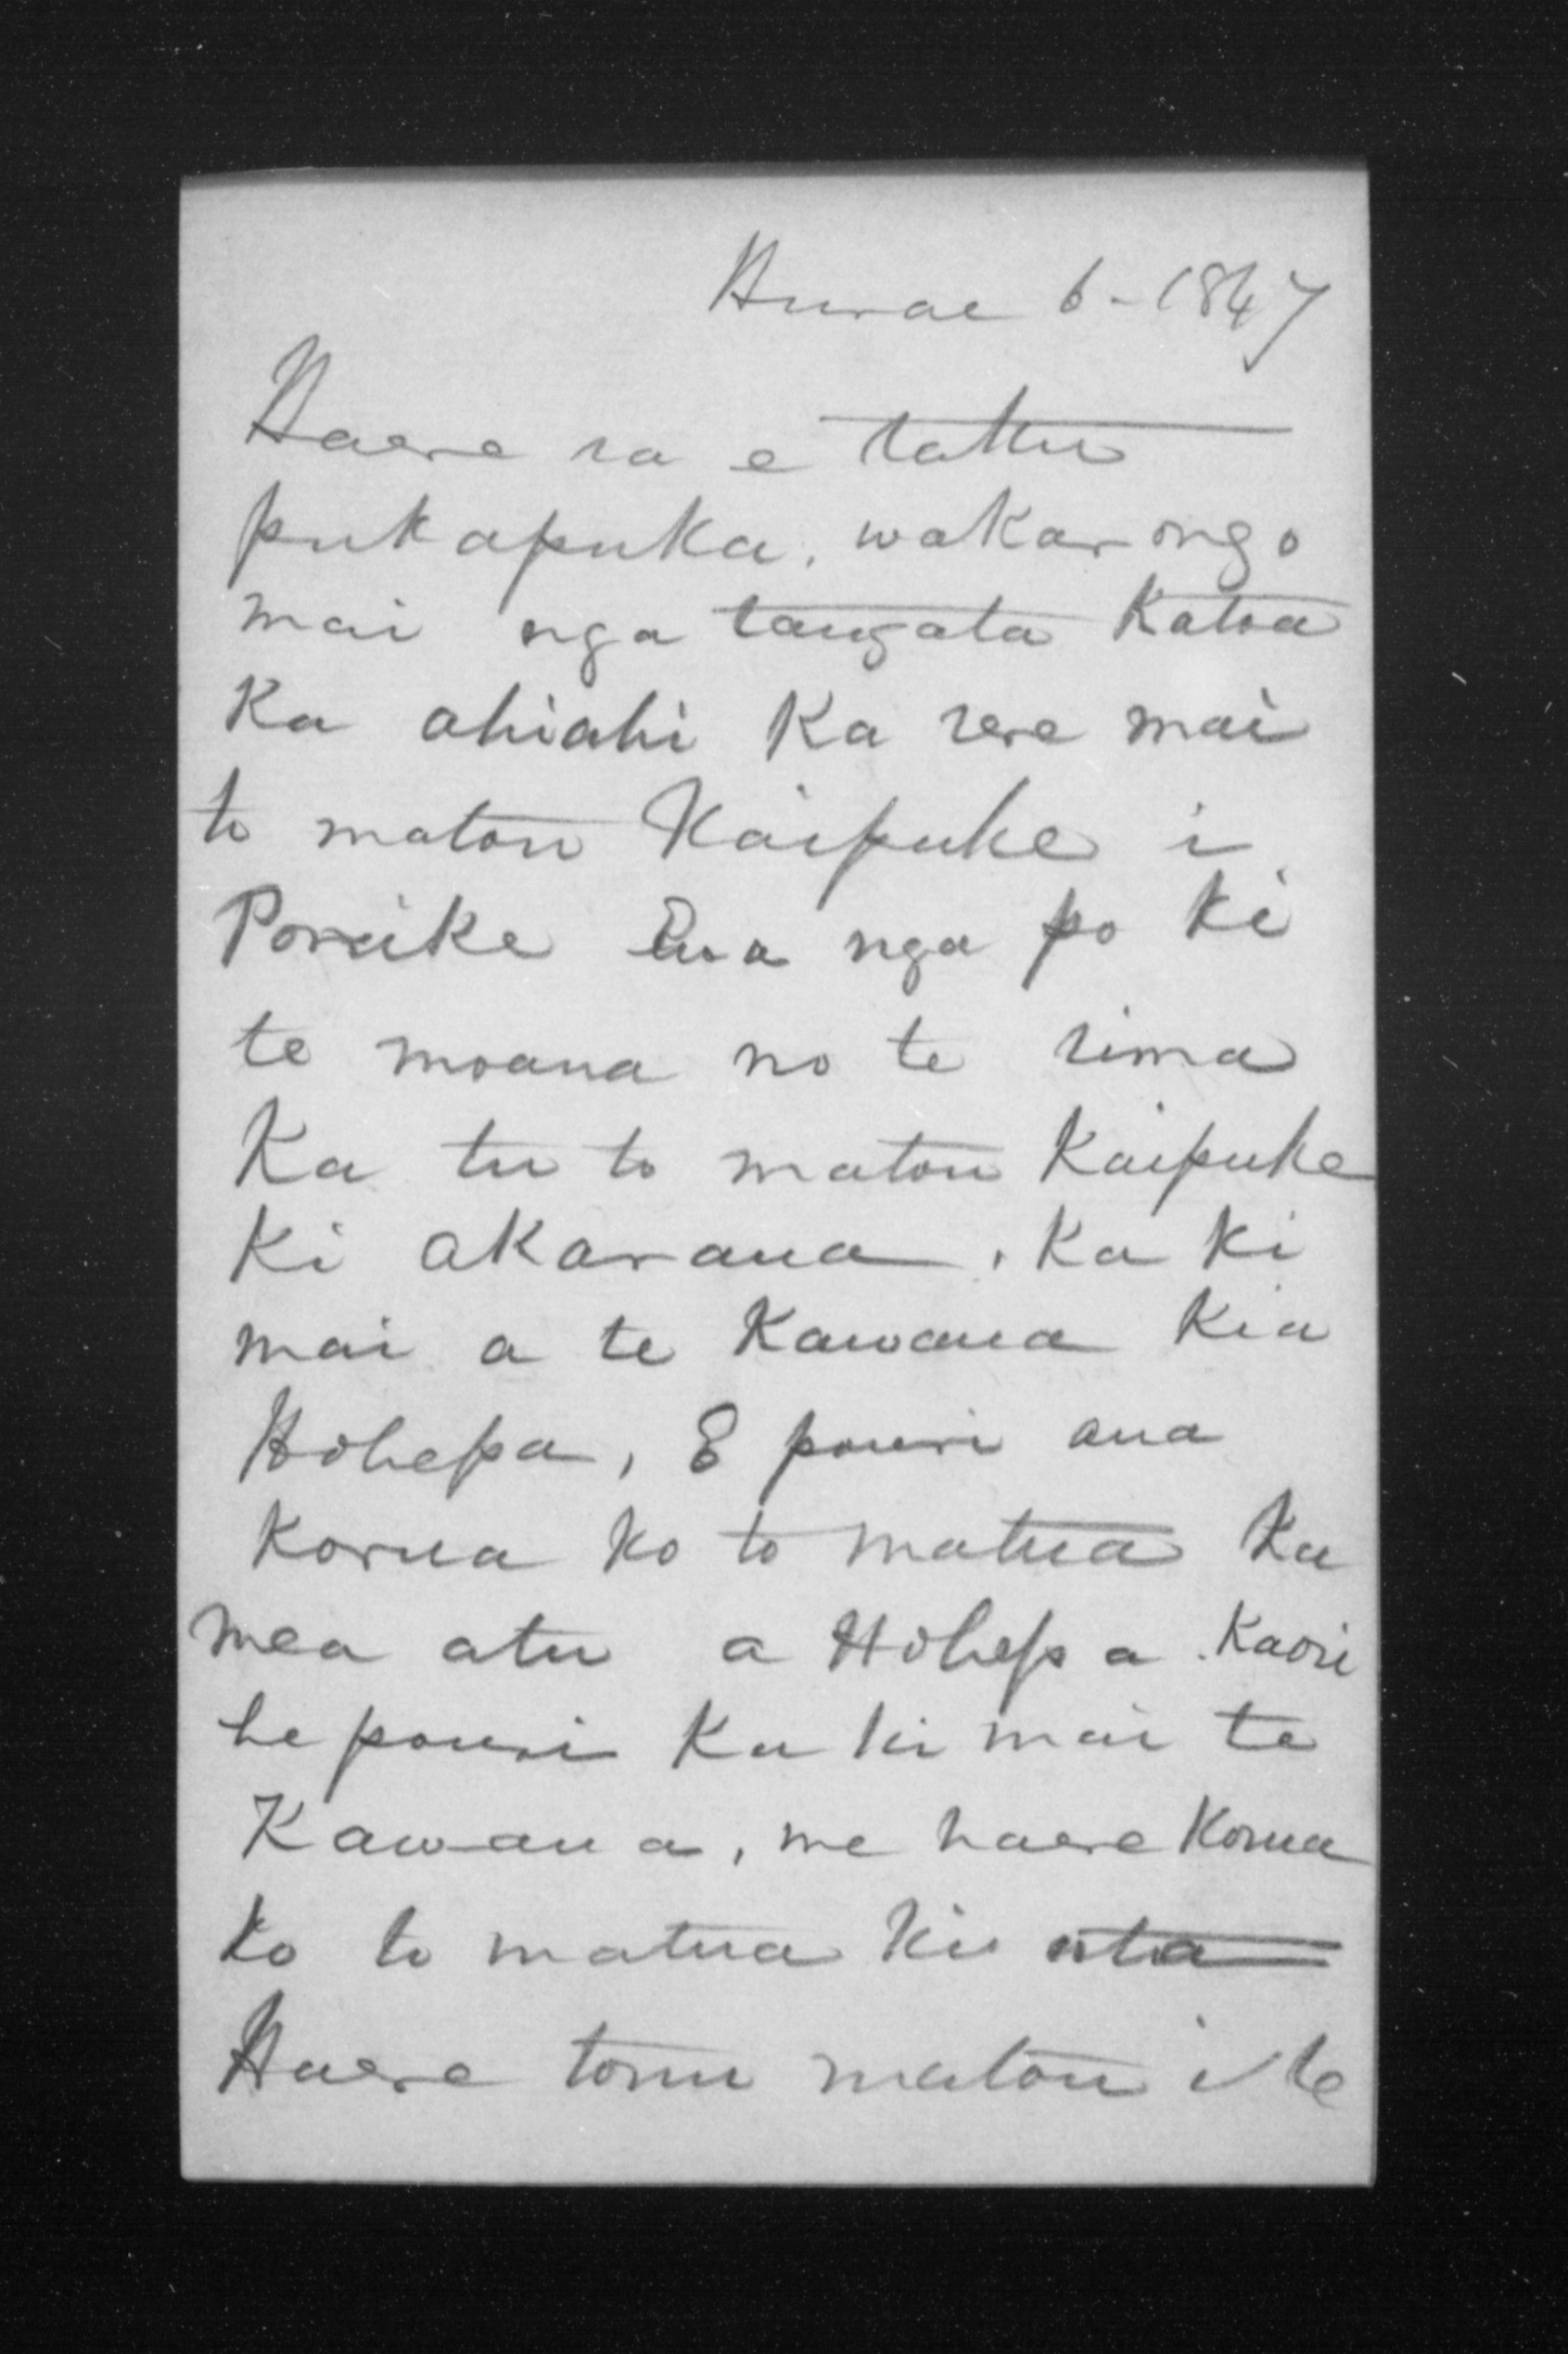 Hurae 6-1847
Haere ra e taku
pukapuka, wakarongo
mai nga tangata Katoa
Ka ahiahi Ka rere mai
to matou Kaipuke i
Poneike Ewa nga po ki
te moana no te rima
Ka tu to matou Kaipuke
Ki akarana, Ka ki
mai a te Kawana Kia
Hohepa, E pouri ana
Korua ko to matua Ka
mea atu a Hohepa. Kaore
he pouri Ka ki mai te
Kawana, me haere Korua
ko to matua ki uta
Haere tonu matou i te